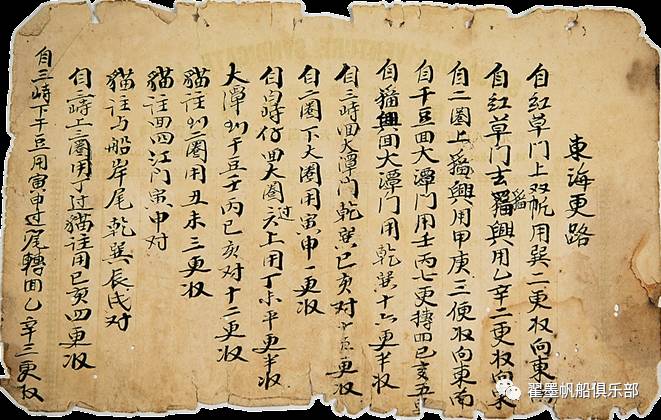 東海更路
自紅草门上双帆用巽二更收向東
自紅草门去猫興用乙辛二更收向東
自二圈上猫興用甲庚三便收向東南
自干豆回大潭门用壬丙七更轉回巳亥五
自猫興回大潭门用乾巽十六更半收
自三峙回大潭门乾巽巳亥对十五更收
自二圈下大圈用寅申一更收
自三峙仔回大圈过上用丁未平更半收
大潭到干豆壬丙巳亥对十二更收
猫注到二圈用丑未三更收
猫注回四江门寅申对
猫注与船岸尾乾巽辰戍对
自三峙上三圈用丁过猫注用巳亥四更收
自三峙下干豆用寅申过尾轉回乙辛三更收
翟墨帆船俱乐部